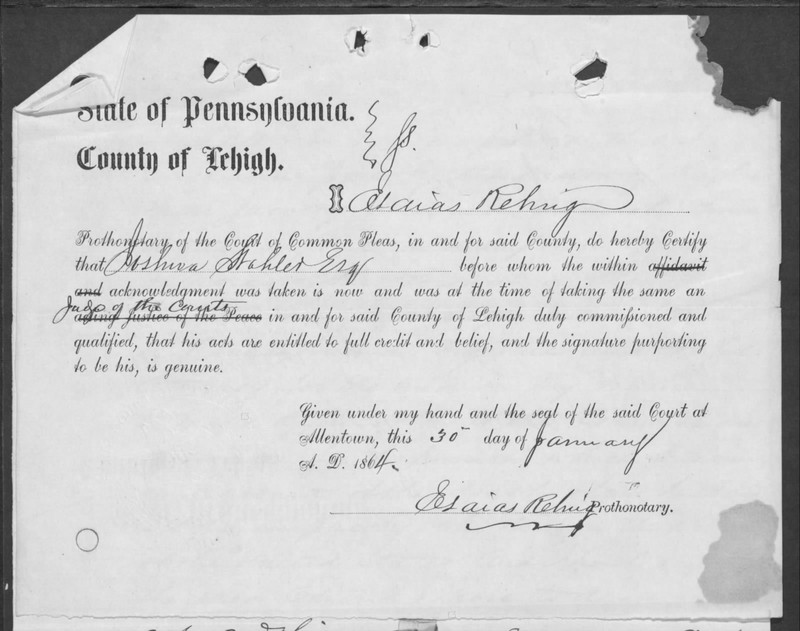 State of Pennsylvania.
County of Lehigh.
ss.
I Esaias Rehrig
Prothonotary of the Court of Common Pleas, in and for said County, do hereby Certify
that Joshua Stahler Esq before whom the within affidavit
and acknowledgment was taken is now and was at the time of taking the same an
Judge of the Courts
acting Justice of the Peace in and for said County of Lehigh duly commissioned and
qualified, that his acts are entitled to full credit and belief, and the signature purporting
to be his, is genuine.
Given under my hand and the seal of the said Court at
Allentown, this 30 day of January
A. D. 1864.
Esaias Rehrig Prothonotary.